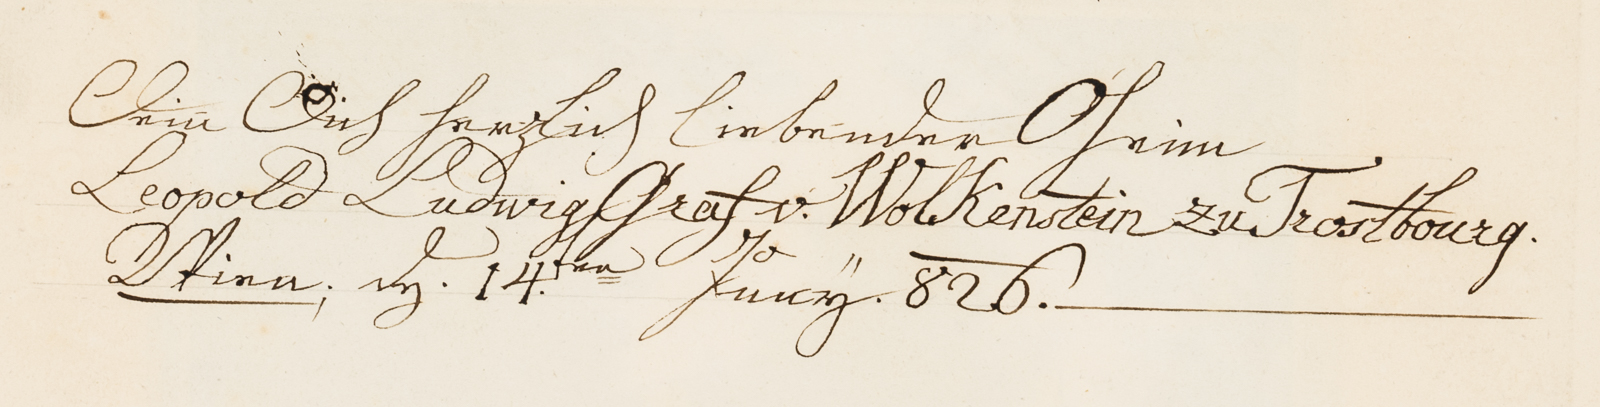 Dein Dich herzlich liebender Oheim
Leopold Ludwig Graf v. Wolkenstein zu Trostbourg.
Wien, d. 14.ten Juny. 826.